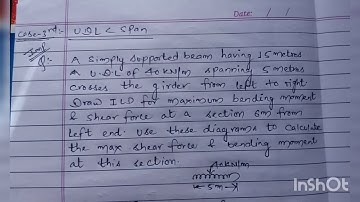 Date: / /
Case-3rd:- U.D.L < Span
Imp
Q:- A simply supported beam having 15 metres
A U.D.L of 40 kN/m spanning 5 metres
crosses the girder from left to right
Draw ILD for maximum bending moment
& shear force at a section 6m from
left end. use these diagrams to calculate
the max shear force & bending moment
at this section.
40kN/m
5m
InShot